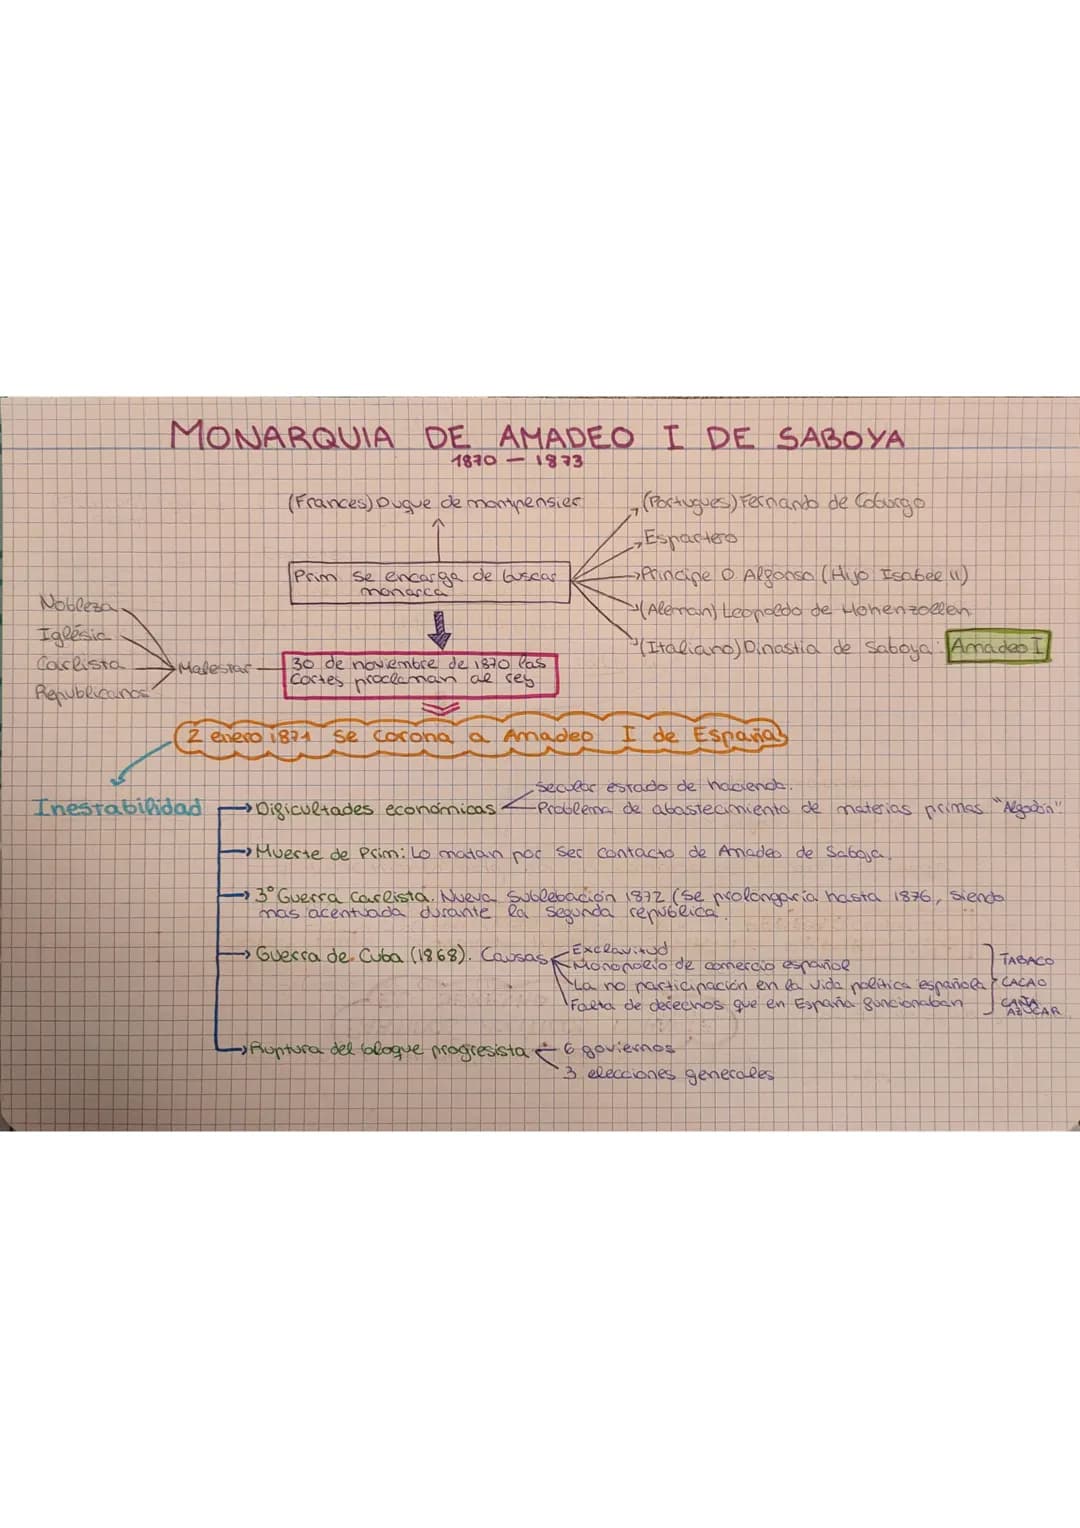 MONARQUIA DE AMADEO I DE SABOYA
1870 — 1873
(Frances) Duque de montpensier
(Portugues) Fernando de Coburgo
Espartero
Prim se encarga de buscar
monarca
Principe D. Alfonso (Hijo Isabel II)
(Aleman) Leopoldo de Hohenzollen
(Italiano) Dinastia de Saboya: Amadeo I
Nobleza
Iglésia
Carlista
Republicanos
Malestar
30 de noviembre de 1870 las
Cortes proclaman al rey
2 enero 1871 se corona a Amadeo I de España
Inestabilidad
Dificultades económicas
Secular estado de hacienda.
Problema de abastecimiento de materias primas "Algodón"
Muerte de Prim: Lo matan por ser contacto de Amadeo de Saboja.
3º Guerra Carlista. Nueva Sublebación 1872 (Se prolongaria hasta 1876, siendo
mas acentuada durante la segunda republica.
Guerra de Cuba (1868). Causas
Exclavitud
Monopolio de comercio español
La no participación en la vida politica española
Falta de derechos que en España funcionaban
TABACO
CACAO
CAÑA
AZUCAR
Ruptura del bloque progresista
6 goviernos
3 elecciones generales